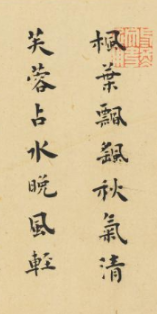 楓葉飄飄秋氣清
芙蓉占水晚風輕